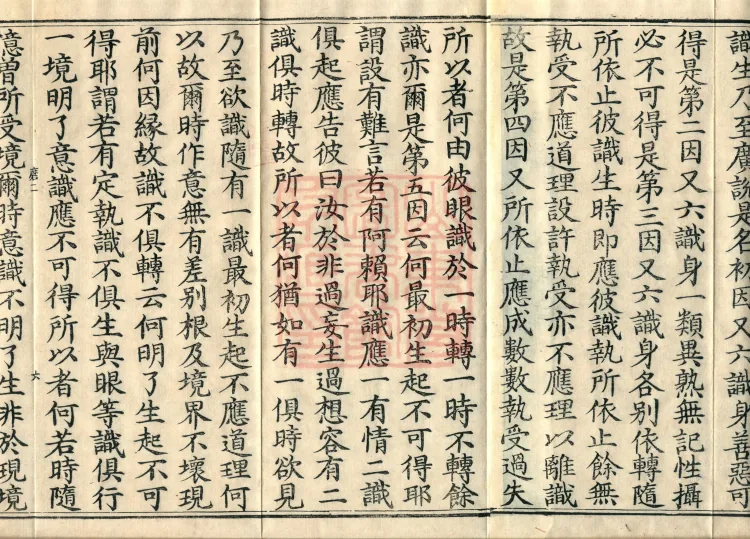 識生乃至廣說是名初因又六識身善惡可
得是第二因又六識身一類異熟無記性攝
必不可得是第三因又六識身各別依轉隨
所依止彼識生時即應彼識執所依止餘無
執受不應道理設許執受亦不應理以離識
故是第四因又所依止應成數數執受過失
所以者何由彼眼識於一時轉一時不轉餘
識亦爾是第五因云何最初生起不可得耶
謂設有難言若有阿賴耶識應一有情二識
俱起應告彼曰汝於非過妄生過想容有二
識俱時轉故所以者何猶如有一俱時欲見
乃至欲識隨有一識最初生起不應道理何
以故爾時作意無有差別根及境界不壞現
前何因緣故識不俱轉云何明了生起不可
得耶謂若有定執識不俱生與眼等識俱行
一境明了意識應不可得所以者何若時隨
六
憶曾所受境爾時意識不明了生非於現境